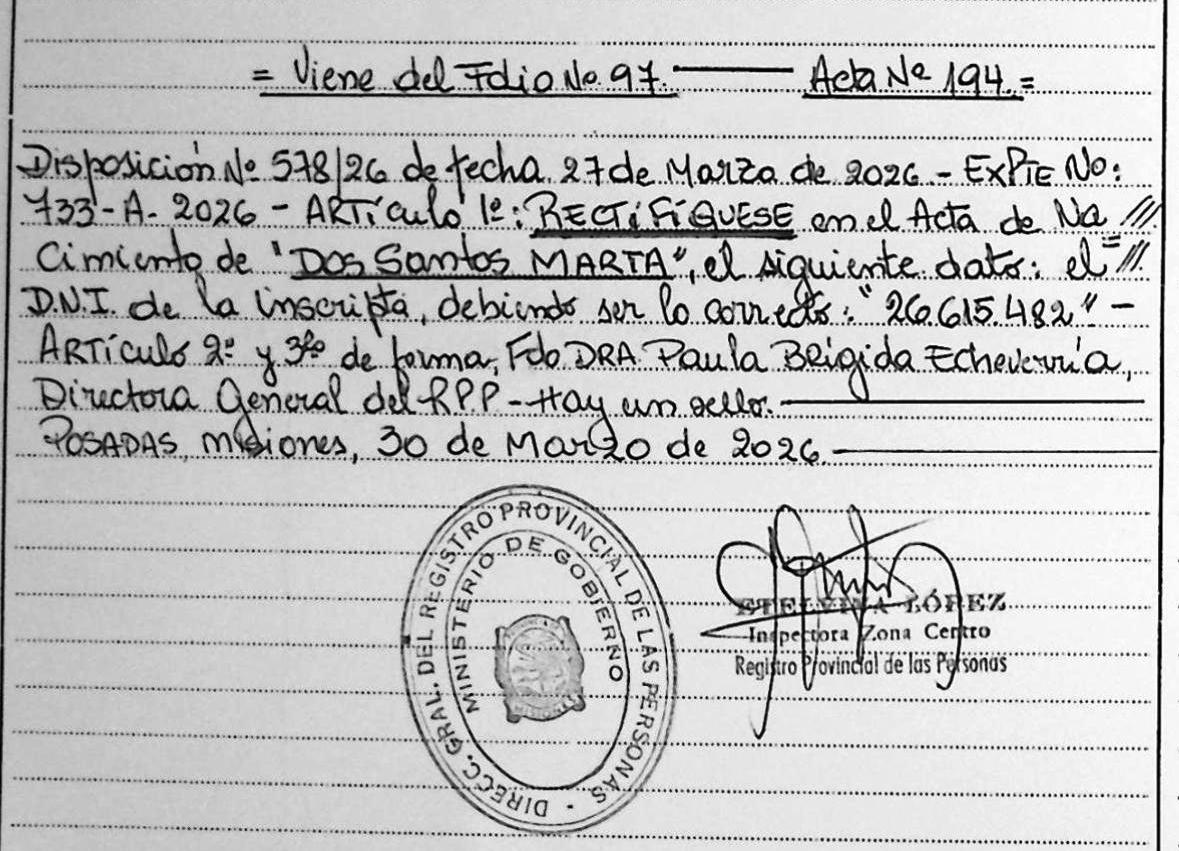 = Viene del Folio Nº 97. —— Acta Nº 194. =
Disposición Nº 578/26 de fecha 27 de Marzo de 2026 - ExPTE No:
733-A- 2026 - ARTículo 1º: RECTiFíQUESE en el Acta de Na ///
Cimiento de "Dos Santos MARTA", el siguiente dato: el ///
D.N.I. de la inscripta, debiendo ser lo correcto: "26.615.482" -
ARTículo 2º y 3º de forma, Fdo DRA Paula BRígida Echeverría,
Directora General del RPP - Hay un sello. ——
POSADAS, misiones, 30 de Marzo de 2026. ——
DIRECC. GRAL. DEL REGISTRO PROVINCIAL DE LAS PERSONAS -
MINISTERIO DE GOBIERNO
MISIONES
ETELVINA LÓPEZ
Inspectora Zona Centro
Registro Provincial de las Personas